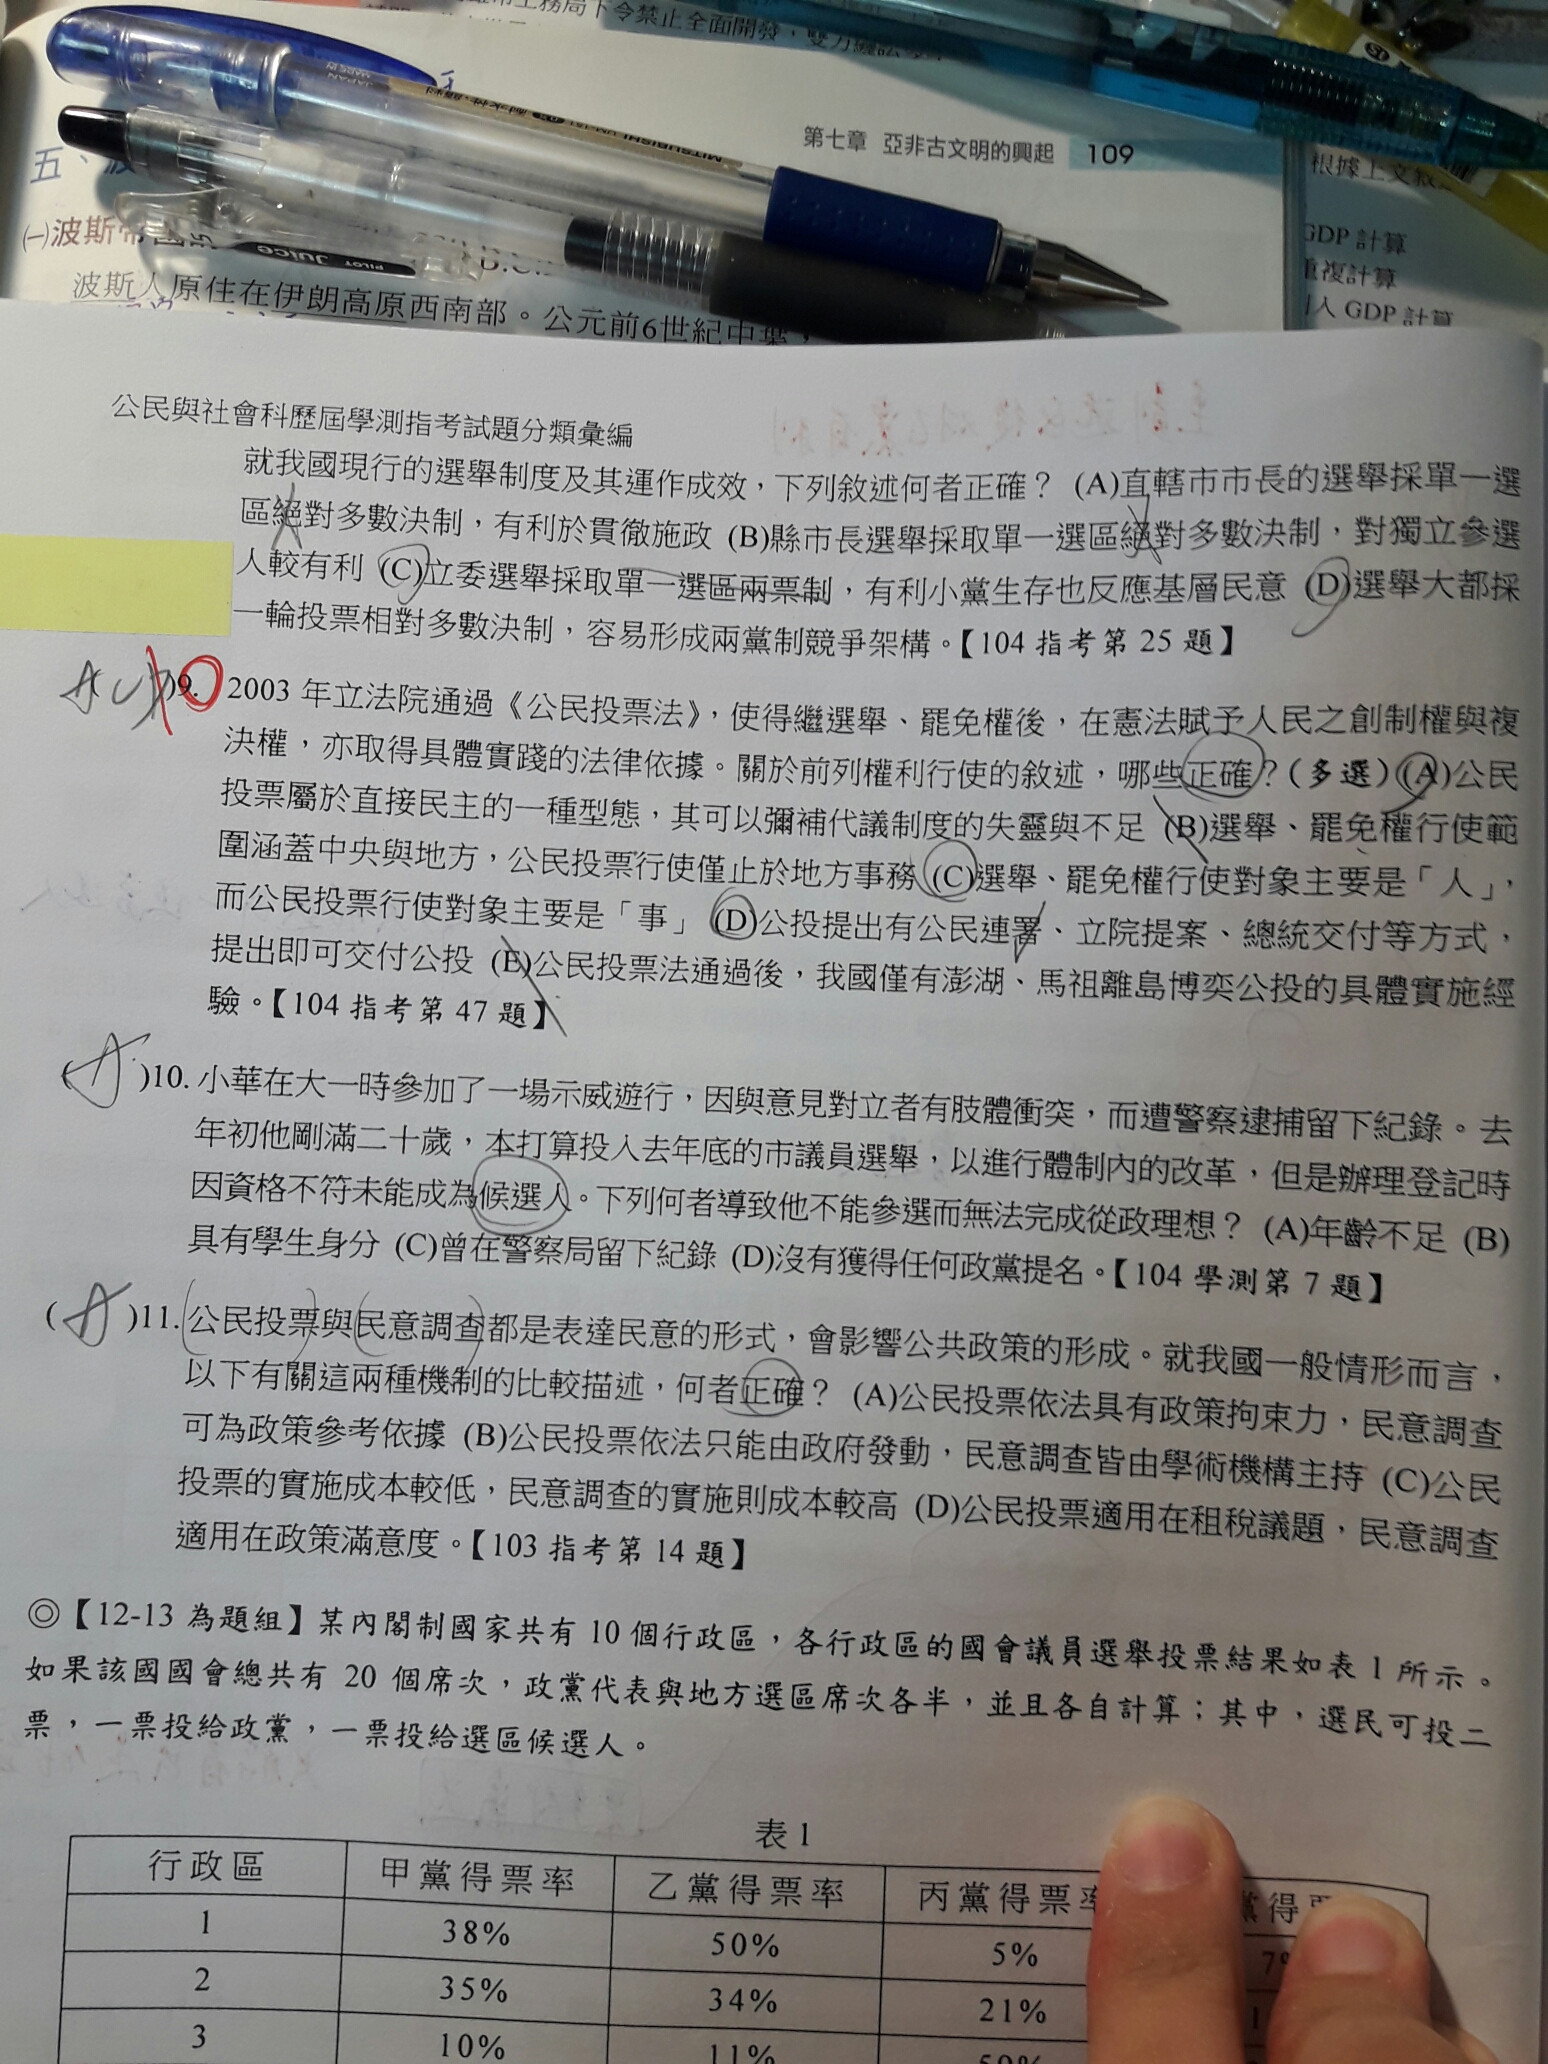 局下令禁止全面開發，雙方纏訟
第七章 亞非古文明的興起 109
五、波
㈠波斯帝國
波斯人原住在伊朗高原西南部。公元前6世紀中葉，
MITSUBISHI
PILOT Juice
JAPAN
根據上文敘
GDP 計算
重複計算
人 GDP 計算
公民與社會科歷屆學測指考試題分類彙編
就我國現行的選舉制度及其運作成效，下列敘述何者正確？ (A)直轄市市長的選舉採單一選
區絕對多數決制，有利於貫徹施政 (B)縣市長選舉採取單一選區絕對多數決制，對獨立參選
人較有利 (C)立委選舉採取單一選區兩票制，有利小黨生存也反應基層民意 (D)選舉大都採
一輪投票相對多數決制，容易形成兩黨制競爭架構。【104 指考第 25 題】
)9. 2003 年立法院通過《公民投票法》，使得繼選舉、罷免權後，在憲法賦予人民之創制權與複
決權，亦取得具體實踐的法律依據。關於前列權利行使的敘述，哪些正確？（多選）(A)公民
投票屬於直接民主的一種型態，其可以彌補代議制度的失靈與不足 (B)選舉、罷免權行使範
圍涵蓋中央與地方，公民投票行使僅止於地方事務 (C)選舉、罷免權行使對象主要是「人」，
而公民投票行使對象主要是「事」 (D)公投提出有公民連署、立院提案、總統交付等方式，
提出即可交付公投 (E)公民投票法通過後，我國僅有澎湖、馬祖離島博奕公投的具體實施經
驗。【104 指考第 47 題】
(A)10. 小華在大一時參加了一場示威遊行，因與意見對立者有肢體衝突，而遭警察逮捕留下紀錄。去
年初他剛滿二十歲，本打算投入去年底的市議員選舉，以進行體制內的改革，但是辦理登記時
因資格不符未能成為候選人。下列何者導致他不能參選而無法完成從政理想？ (A)年齡不足 (B)
具有學生身分 (C)曾在警察局留下紀錄 (D)沒有獲得任何政黨提名。【104 學測第 7 題】
(A)11. 公民投票與民意調查都是表達民意的形式，會影響公共政策的形成。就我國一般情形而言，
以下有關這兩種機制的比較描述，何者正確？ (A)公民投票依法具有政策拘束力，民意調查
可為政策參考依據 (B)公民投票依法只能由政府發動，民意調查皆由學術機構主持 (C)公民
投票的實施成本較低，民意調查的實施則成本較高 (D)公民投票適用在租稅議題，民意調查
適用在政策滿意度。【103 指考第 14 題】
◎【12-13 為題組】某內閣制國家共有 10 個行政區，各行政區的國會議員選舉投票結果如表 1 所示。
如果該國國會總共有 20 個席次，政黨代表與地方選區席次各半，並且各自計算；其中，選民可投二
票，一票投給政黨，一票投給選區候選人。
表 1
行政區 甲黨得票率 乙黨得票率 丙黨得票率 黨得票
1 38% 50% 5% 7%
2 35% 34% 21% 1
3 10% 11% 59%